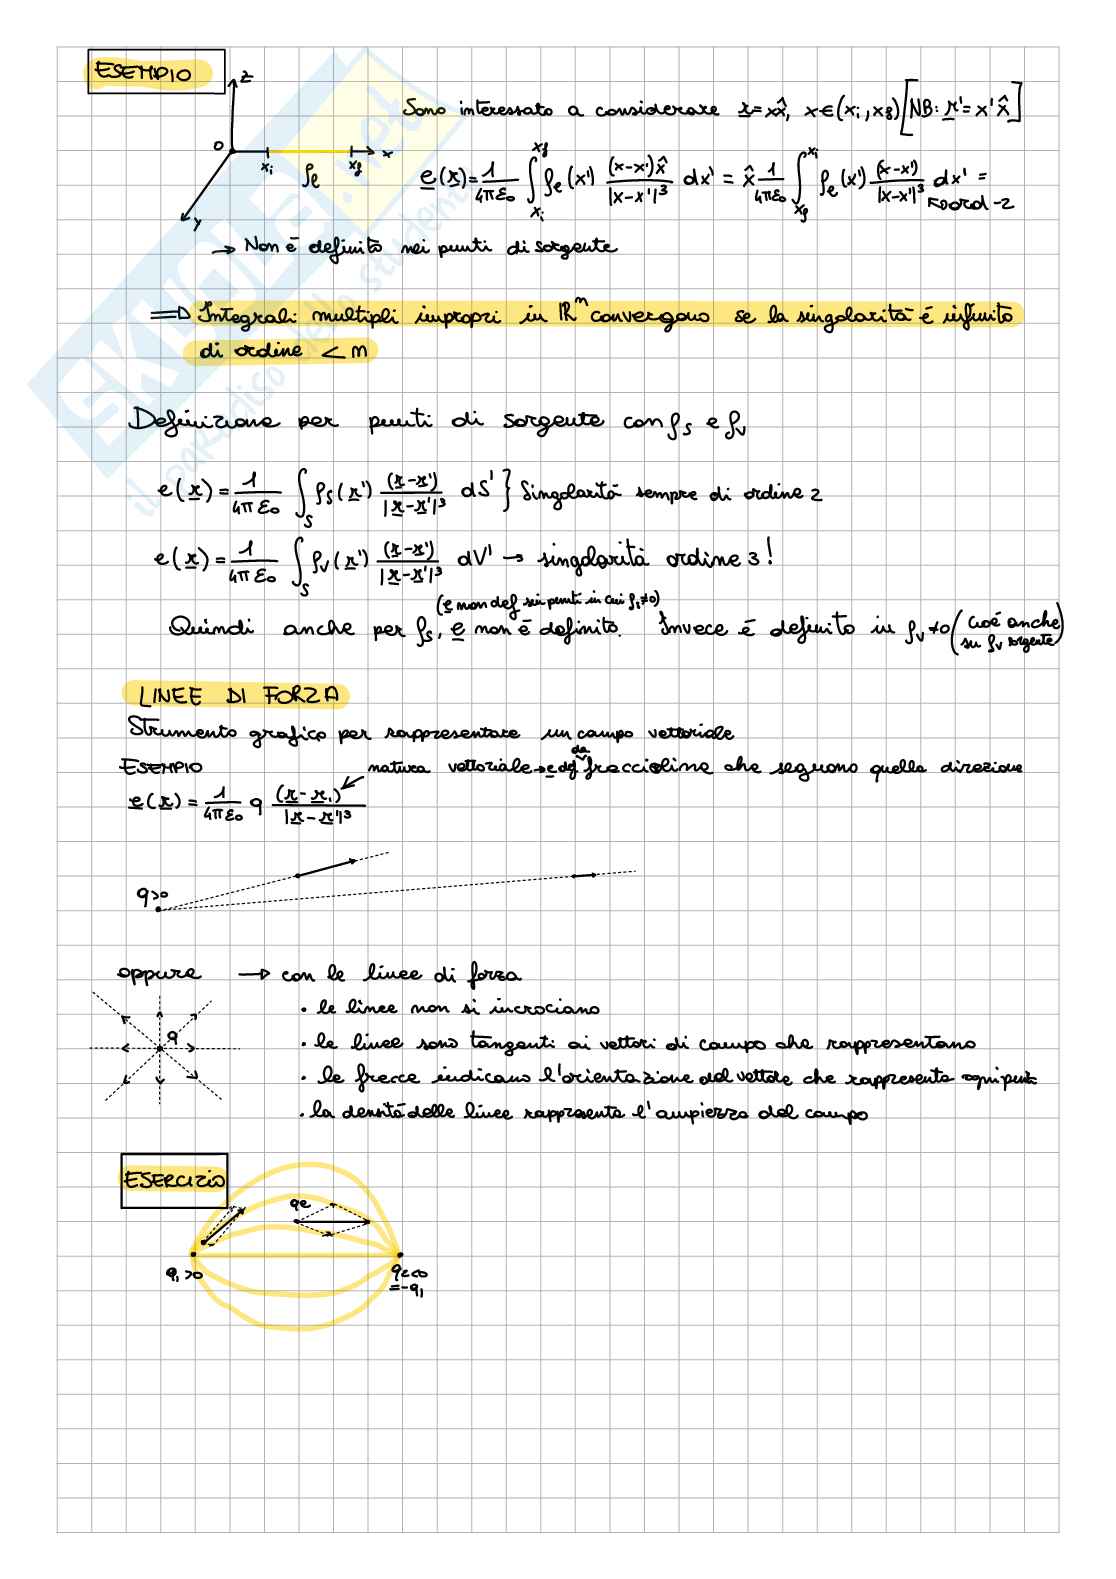 ESEMPIO
z
O
x_i ρ_e x_f x
y
Sono interessato a considerare r = x x̂, x ∈ (x_i, x_f) [NB: r' = x' x̂]
e(r) = 1/(4πε₀) ∫_{x_i}^{x_f} ρ_e(x') (x-x')x̂/|x-x'|³ dx' = x̂ 1/(4πε₀) ∫_{x_f}^{x_i} ρ_e(x') (x-x')/|x-x'|³ dx' =
→ Non è definito nei punti di sorgente
⇒ Integrali multipli impropri in ℝⁿ convergono se la singolarità é infinito
di ordine < n
Definizione per punti di sorgente con ρ_s e ρ_v
e(r) = 1/(4πε₀) ∫_S ρ_s(r') (r-r')/|r-r'|³ dS' } Singolarità sempre di ordine 2
e(r) = 1/(4πε₀) ∫_S ρ_v(r') (r-r')/|r-r'|³ dV' → singolarità ordine 3!
(e non def nei punti in cui ρ_s≠0)
Quindi anche per ρ_s, e non è definito. Invece è definito in ρ_v ≠0 (cioè anche
su ρ_v sorgente)
LINEE DI FORZA
Strumento grafico per rappresentare un campo vettoriale
ESEMPIO natura vettoriale → e def da freccioline che seguono quella direzione
e(r) = 1/(4πε₀) q (r-r')/|r-r'|³
q>0
oppure → con le linee di forza
• le linee non si incrociano
q
• le linee sono tangenti ai vettori di campo che rappresentano
• le frecce indicano l'orientazione del vettore che rappresenta ogni punto
• la densità delle linee rappresenta l'ampiezza del campo
ESERCIZIO
q_1>0
q_2<0
=-q_1
SKUOLA.net
il paradiso dello studente